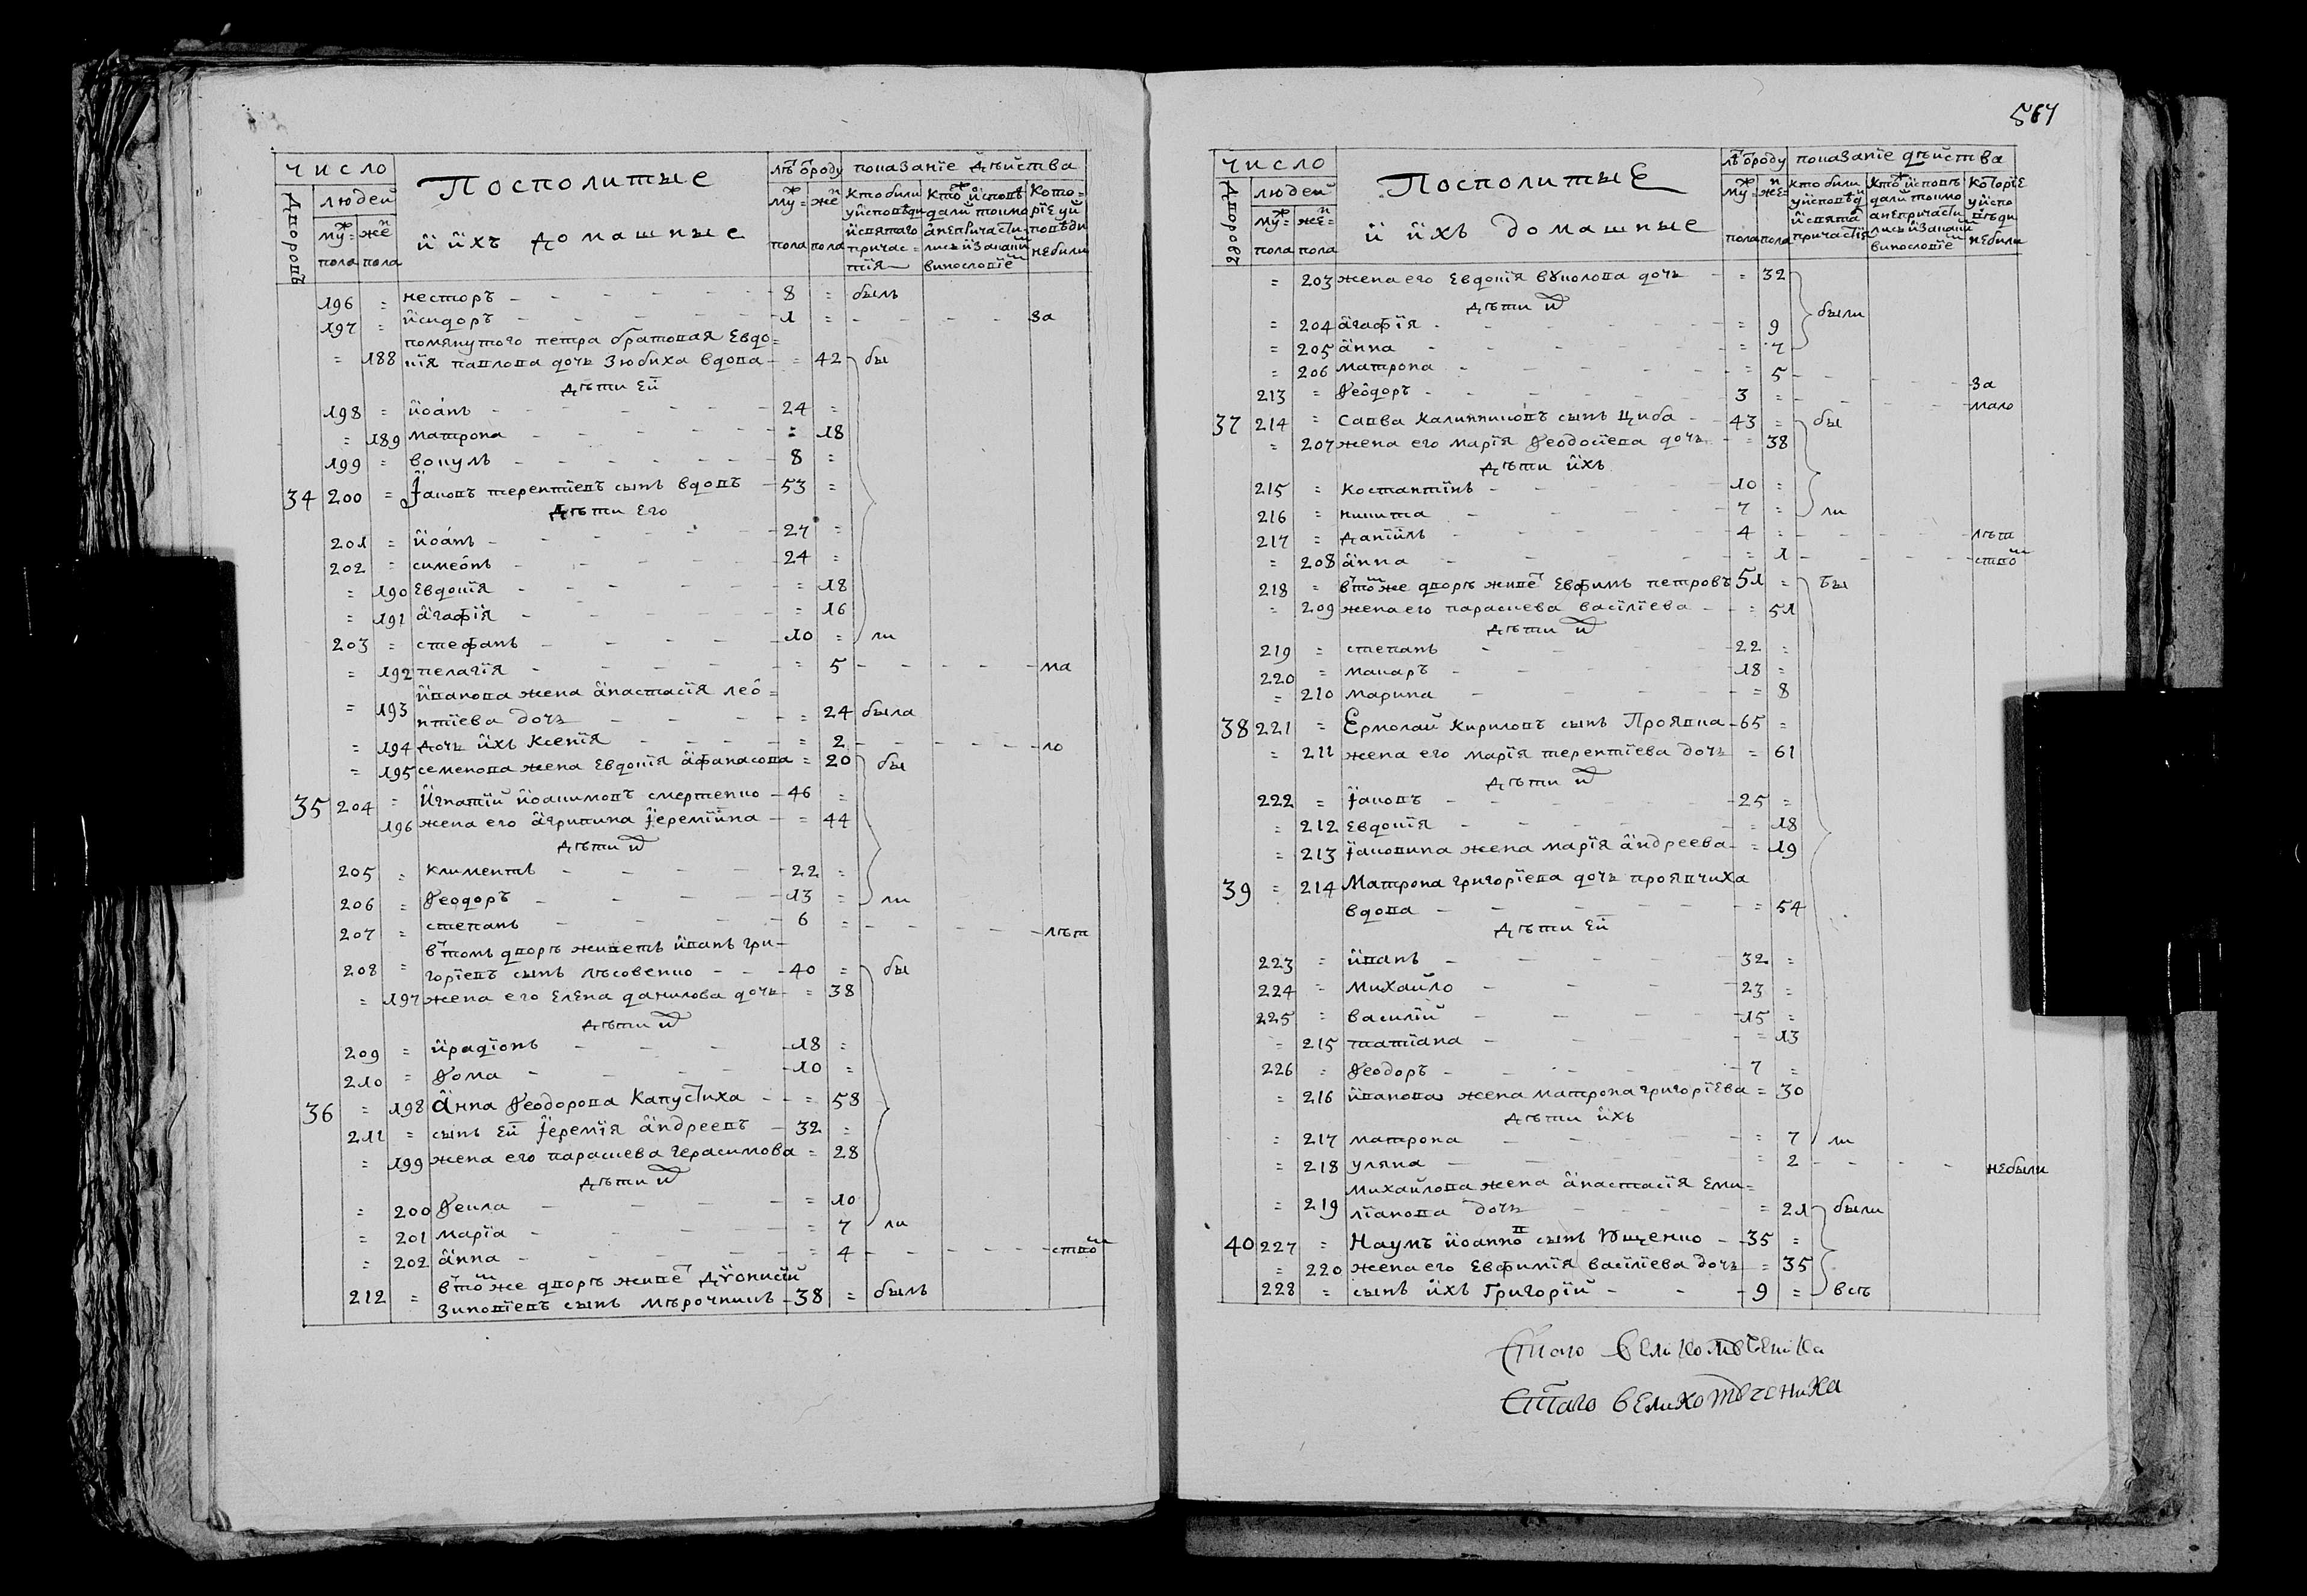 число
Дворовъ
людей
муж= полa
жен пола
Посполитые
и ихъ домашные
лѣтъ ѿроду
муж= пола
жен пола
показанїе дѣйства
кто были у исповѣди и святаго причас=тїя
Кто исповѣдали токмо а непричастились и за какимъ винословїем
Которїе у исповѣди небыли
196 = несторъ - 8 = былъ
197 = исидоръ - 1 = за
помянутого петра братовая Евдо=
= 188 кїя павлова дочь Зюбиха вдова = 42 бы
дѣти ей
198 = иоанъ - 24 =
= 189 матрона = 18
199 = вокулъ - 8 =
34 200 = Іаковъ терентїевъ сынъ вдовъ - 53 =
дѣти его
201 = иоанъ - 27 =
202 = симеонъ - 24 =
= 190 Евдокїя = 18
= 191 агафїя = 16
203 = стефанъ - 10 = ли
= 192 пелагїя = 5 ма
иванова жена анастасїя лео=
= 193 нтїева дочь = 24 была
= 194 дочь ихъ ксенїя = 2 ло
= 195 семенова жена Евдокїя афанасова = 20 бы
35 204 = Игнатїй иоакимовъ смертенко - 46 =
196 жена его агрипина Іеремїина = 44
дѣти их
205 = климентъ - 22 =
206 = Феодоръ - 13 = ли
207 = степанъ - 6 = лѣт
в томъ дворѣ живетъ иванъ гри-
208 = горїевъ сынъ лѣсовенко - 40 = бы
= 197 жена его Елена данилова дочь = 38
дѣти их
209 = иродїонъ - 18 =
210 = Фома - 10 =
36 = 198 Анна Феодорова Капустиха = 58
211 = сынъ ей Іеремїя андреевъ - 32 =
= 199 жена его параскева герасимова = 28
дѣти их
= 200 Фекла = 10
= 201 марїа = 7 ли
= 202 анна = 4 ство
в томже дворѣ живетъ Дѵонисїй
212 = Зиновїевъ сынъ мѣрочникъ - 38 = былъ
567
число
Дворовъ
людей
муж= пола
жен= пола
Посполитые
и ихъ домашные
лѣтъ ѿроду
муж= пола
жен= пола
показанїе дѣиства
кто были у исповѣд и святаг причастїя
Кто исповѣдали токмо а непричастились и за какимъ винословїем
Которїе у испо вѣди небыли
= 203 жена его Евдокїя вѵколова дочь = 32
дѣти их
были
= 204 агафїя = 9
= 205 анна = 7
= 206 матрона = 5 за
213 = Феодоръ - 3 = мало
37 214 = Савва Калинниковъ сынъ Циба - 43 = бы
= 207 жена его марїя Феодосїева дочь = 38
дѣти ихъ
215 = костантїнъ - 10 =
216 = никита - 7 = ли
217 = данїилъ - 4 = лѣт
= 208 анна = 1 ство
218 = в томже дворѣ живет Евфимъ петровъ 51 = бы
= 209 жена его параскева васїлїева = 51
дѣти их
219 = степанъ - 22 =
220 = макаръ - 18 =
= 210 марина = 8
38 221 = Ермолай кириловъ сынъ Проявка - 65 =
= 211 жена его марїя терентїева дочь = 61
дѣти их
222 = Іаковъ - 25 =
= 212 Евдокїя = 18
= 213 Іаковина жена марїя андреева = 19
39 = 214 Матрона григорїева дочь проявчиха
вдова = 54
дѣти ей
223 = иванъ - 32 =
224 = михайло - 23 =
225 = василїй - 15 =
= 215 татїана = 13
226 = Феодоръ - 7 =
= 216 иванова жена матрона григорїева = 30
дѣти ихъ
= 217 матрона = 7 ли
= 218 уляна = 2 небыли
михайлова жена анастасїя еми=
= 219 лїанова дочь = 21 были
40 227 = Наумъ иоанновъ сынъ Ющенко - 35 =
= 220 жена его Евфимїя васїлїева дочь = 35
228 = сынъ ихъ Григорїй - 9 = всѣ